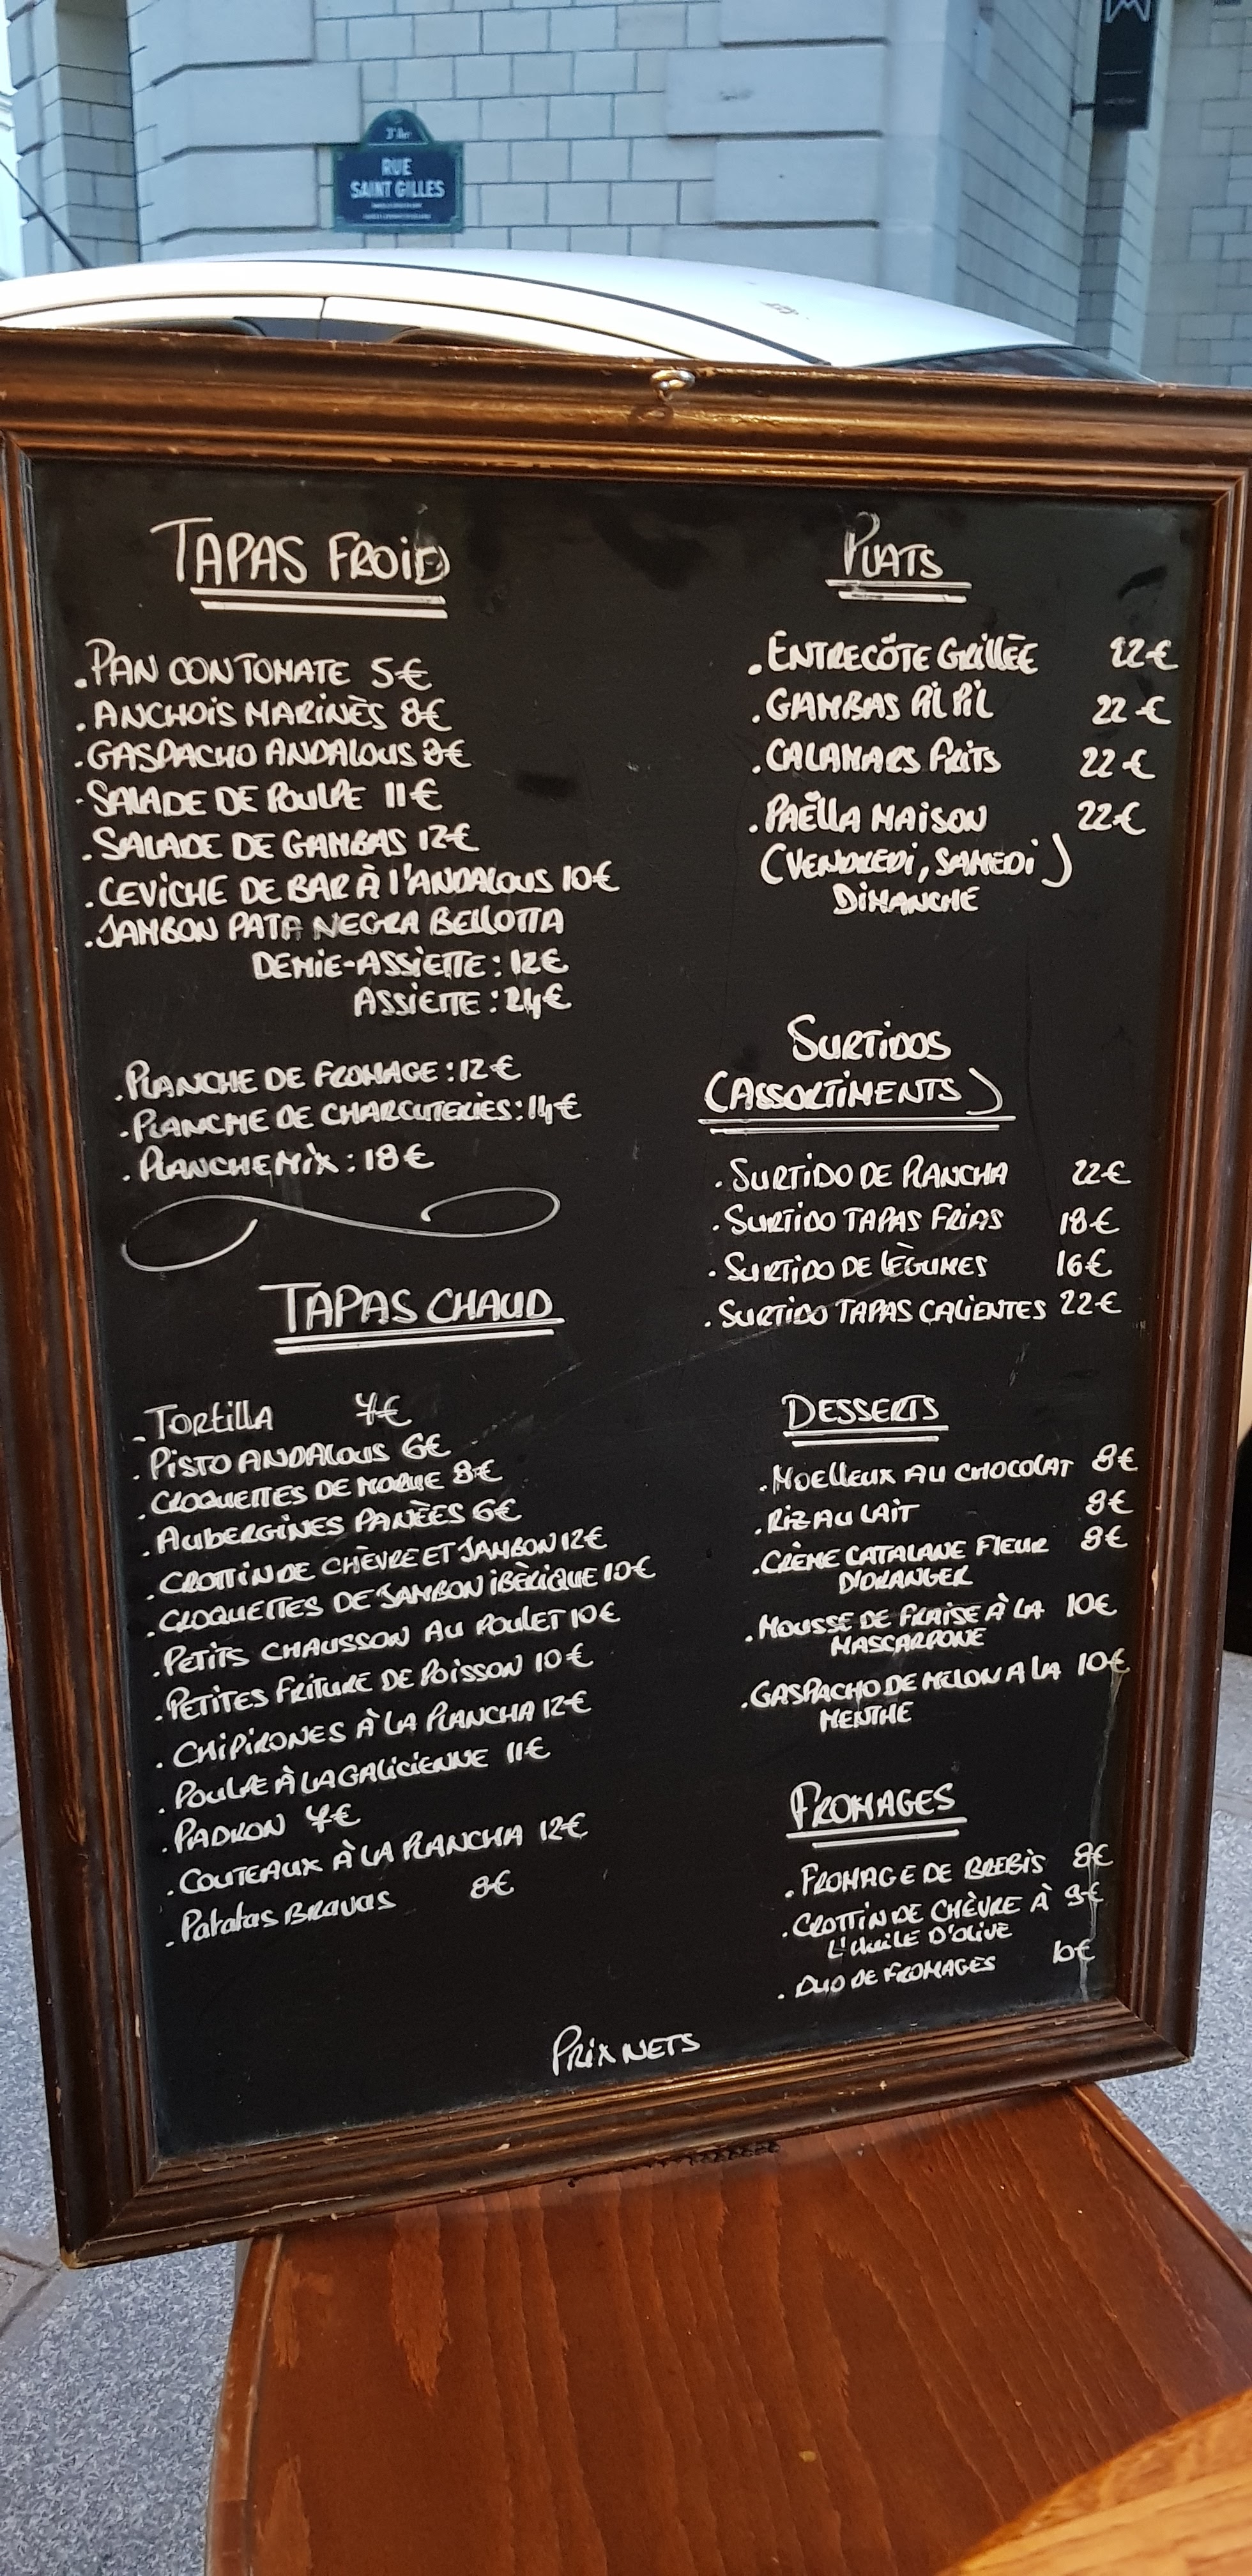 3e Arrt
RUE
SAINT GILLES
TAPAS FROID
.PAN CON TOMATE 5€
.ANCHOIS MARINÈS 8€
.GASPACHO ANDALOUS 8€
.SALADE DE POULPE 11€
.SALADE DE GAMBAS 12€
.CEVICHE DE BAR À L'ANDALOUS 10€
.JAMBON PATA NEGRA BELLOTTA
DEMIE-ASSIETTE : 12€
ASSIETTE : 24€
.PLANCHE DE FROMAGE : 12€
.PLANCHE DE CHARCUTERIES : 14€
.PLANCHE MIX : 18€
TAPAS CHAUD
.TORTILLA 7€
.PISTO ANDALOUS 6€
.CROQUETTES DE MORUE 8€
.AUBERGINES PANÈES 6€
.CROTTIN DE CHÈVRE ET JAMBON 12€
.CROQUETTES DE JAMBON IBÈRIQUE 10€
.PETITS CHAUSSON AU POULET 10€
.PETITES FRITURE DE POISSON 10€
.CHIPIRONES À LA PLANCHA 12€
.POULPE À LA GALICIENNE 11€
.PADRON 7€
.COUTEAUX À LA PLANCHA 12€
.Patatas BRAVAS 8€
PLATS
.ENTRECÔTE GRILLÈE 22€
.GAMBAS PIL PIL 22€
.CALAMARS FRITS 22€
.PAËLLA MAISON 22€
(VENDREDI, SAMEDI)
DIMANCHE
SURTIDOS
(ASSORTIMENTS)
.SURTIDO DE PLANCHA 22€
.SURTIDO TAPAS FRIAS 18€
.SURTIDO DE LÈGUMES 16€
.SURTIDO TAPAS CALIENTES 22€
DESSERTS
.MOELLEUX AU CHOCOLAT 8€
.RIZ AU LAIT 8€
.CRÈME CATALANE FLEUR 8€
D'ORANGER
.MOUSSE DE FRAISE À LA 10€
MASCARPONE
.GASPACHO DE MELON A LA 10€
MENTHE
FROMAGES
.FROMAGE DE BREBIS 8€
.CROTTIN DE CHÈVRE À 9€
L'HUILE D'OLIVE
.DUO DE FROMAGES 10€
PRIX NETS